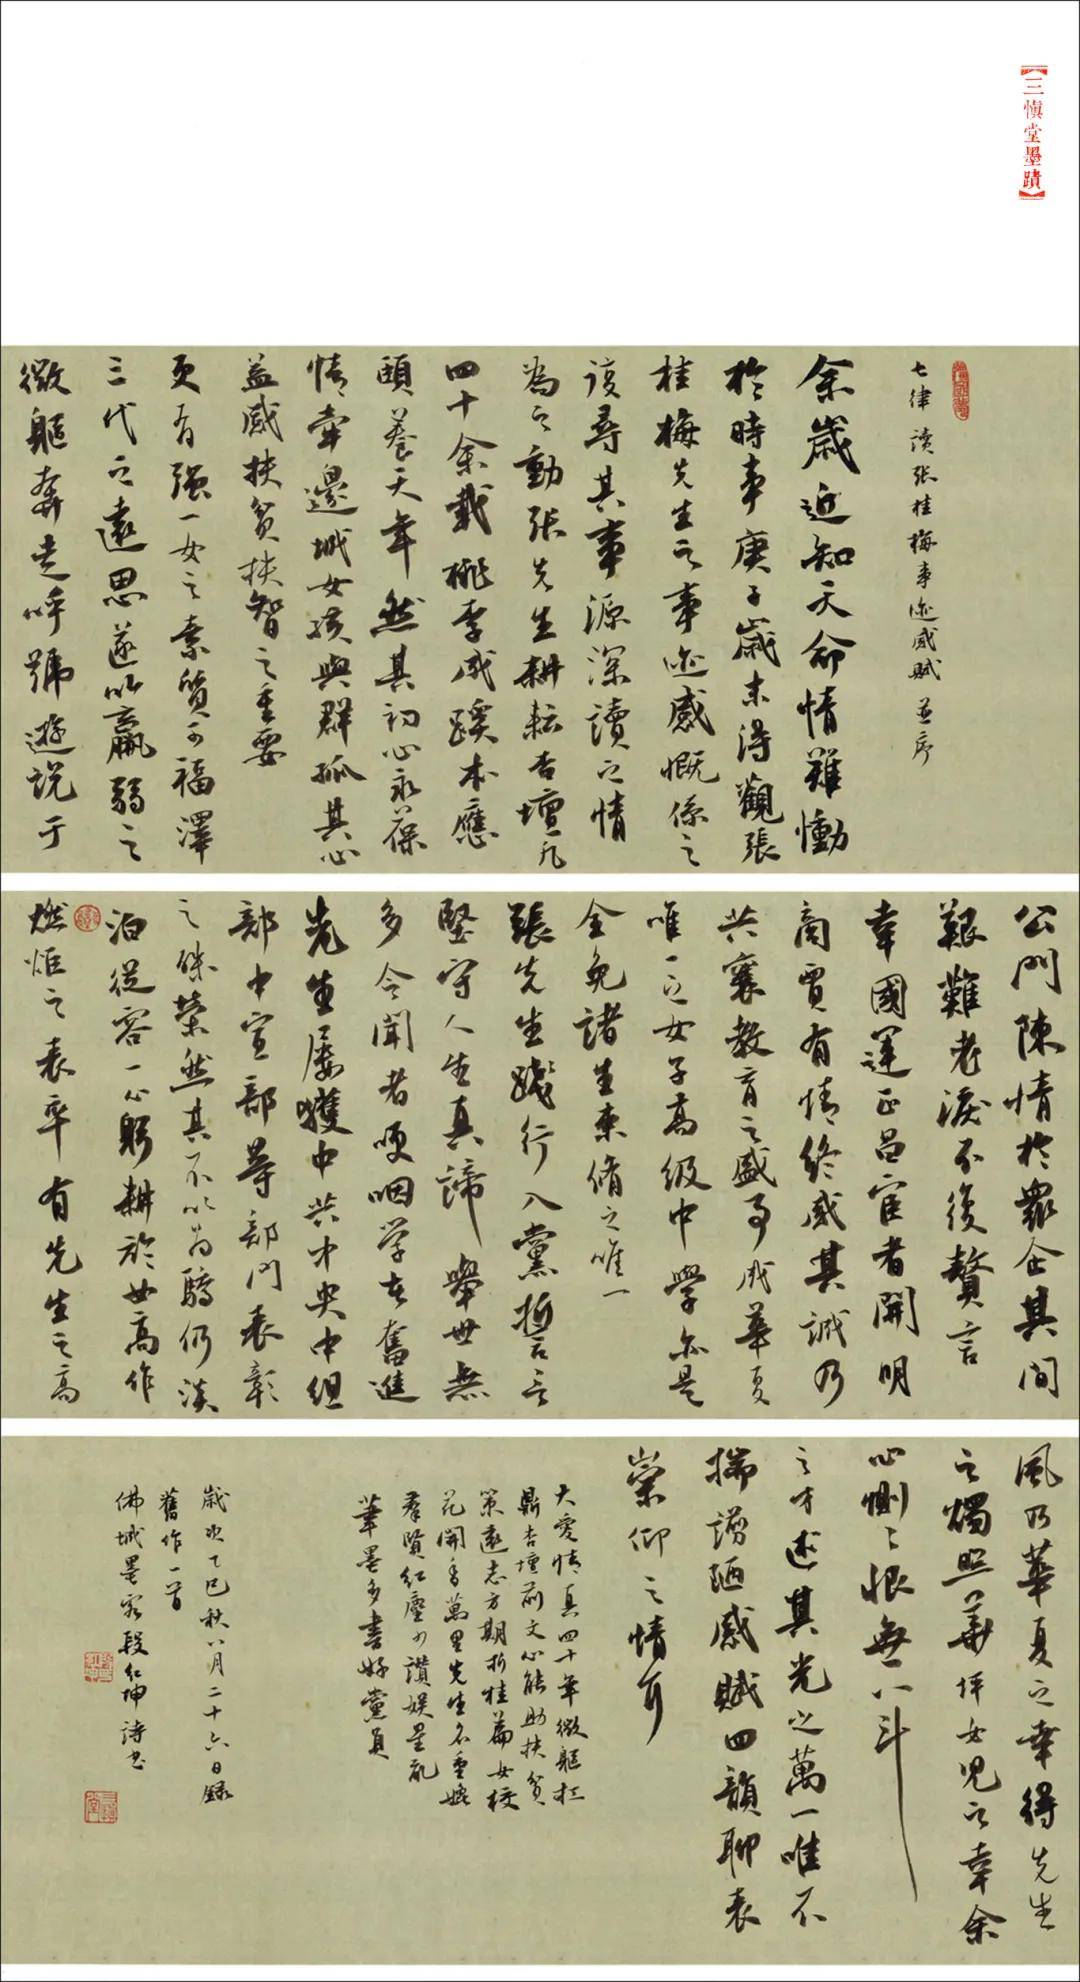 【三慎堂墨蹟】
七律 读张桂梅事迹感赋 並序
余歲近知天命情難慟
於時事庚子歲末得觀張
桂梅先生之事迹感慨係之
復尋其事源深讀之情
為之動張先生耕耘杏壇凡
四十余載桃李成蹊本應
頤養天年然其初心永葆
情牵邊城女孩與群孤其心
益感扶貧扶智之重要
更有强一女之素質可福澤
三代之遠思遂以羸弱之
微軀奔走呼號遊説于
公門陳情於眾企其间
艱難老淚不復贅言
幸國運正昌官者開明
商賈有情终感其誠乃
共襄教育之盛事成華夏
唯一之女子高级中學亦是
全免諸生束脩之唯一
張先生踐行入黨誓言
堅守人生真諦舉世無
多令聞者哽咽学者奮進
先生屡獲中共中央中组
部中宣部等部门表彰
之殊榮然其不以为驕仍淡
泊從容一心躬耕於女高作
燃炬之表率有先生之高
風乃華夏之幸得先生
之燭照華坪女児之幸余
心惻之恨無八斗
之才述其光之萬一唯不
揣譾陋感賦四韻聊表
崇仰之情耳
大愛情真四十年微軀扛
鼎杏壇前文心能助扶貧
策遠志方期折桂篇女校
花開香萬里先生名重
羣賢紅塵多讚娱星亂
筆墨多書好黨員
歲次乙巳秋八月二十六日録
舊作一首
佛城墨客段红坤詩书